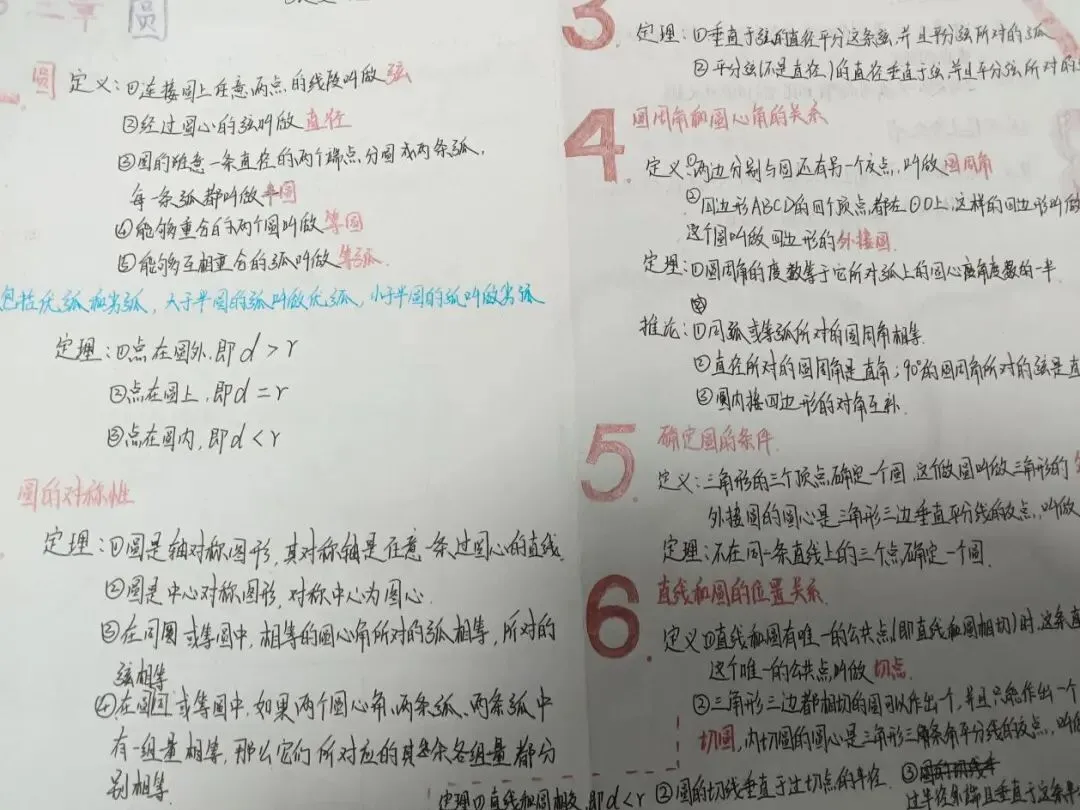 二章 圆
圆 定义：①连接圆上任意两点的线段叫做弦
②经过圆心的弦叫做直径
③圆的任意一条直径的两个端点分圆成两条弧，
每一条弧都叫做半圆
④能够重合的两个圆叫做等圆
⑤能够互相重合的弧叫做等弧.
包括优弧和劣弧，大于半圆的弧叫做优弧，小于半圆的弧叫做劣弧
定理：①点在圆外，即d＞r
②点在圆上，即d＝r
③点在圆内，即d＜r
圆的对称性
定理：①圆是轴对称图形，其对称轴是任意一条过圆心的直线.
②圆是中心对称图形，对称中心为圆心.
③在同圆或等圆中，相等的圆心角所对的弧相等，所对的
弦相等
④在同圆或等圆中，如果两个圆心角、两条弧、两条弧中
有一组量相等，那么它们所对应的其余各组量都分
别相等.
3. 定理：①垂直于弦的直径平分这条弦，并且平分弦所对的弧
②平分弦(不是直径)的直径垂直于弦，并且平分弦所对的
4. 圆周角和圆心角的关系
定义：①两边分别与圆还有另一个交点，叫做圆周角
②四边形ABCD的四个顶点都在⊙O上，这样的四边形叫做
这个圆叫做四边形的外接圆.
定理：①圆周角的度数等于它所对弧上的圆心角度数的一半.
推论：①同弧或等弧所对的圆周角相等.
②直径所对的圆周角是直角；90°的圆周角所对的弦是直
③圆内接四边形的对角互补.
5. 确定圆的条件
定义：三角形的三个顶点确定一个圆，这个做圆叫做三角形的
外接圆的圆心是三角形三边垂直平分线的交点，叫做
定理：不在同一条直线上的三个点确定一个圆.
6. 直线和圆的位置关系.
定义①直线和圆有唯一的公共点(即直线和圆相切)时，这条直
这个唯一的公共点叫做切点
②三角形三边都相切的圆可以作出一个，并且只能作出一个
切圆，内切圆的圆心是三角形三条角平分线的交点，叫做
定理①直线和圆相交，即d＜r ②圆的切线垂直于过切点的半径. ③
过半径外端且垂直于这条半